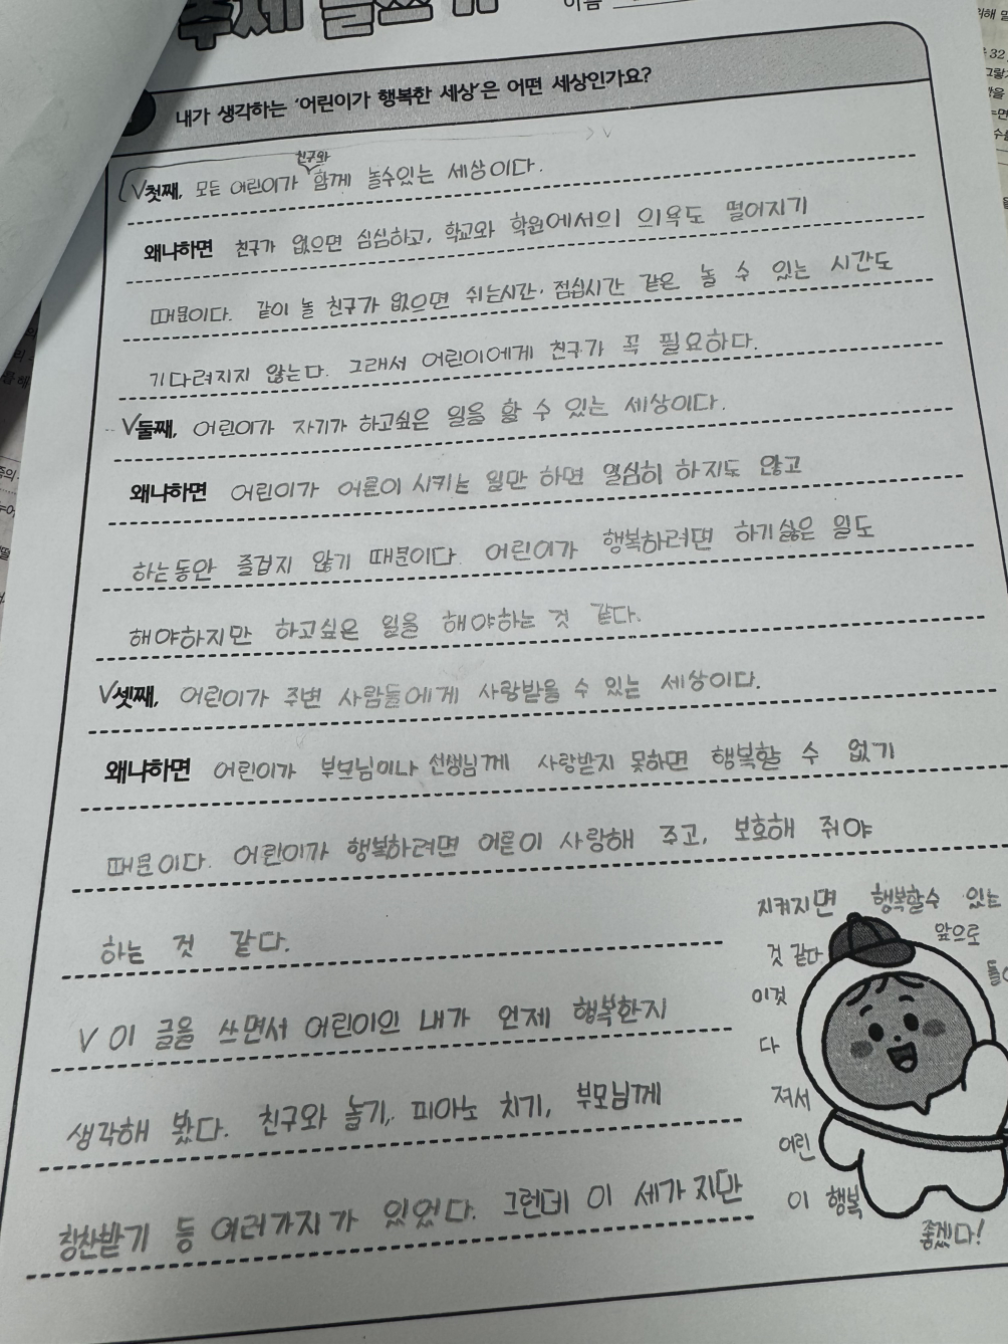 주제 글쓰기
이름
내가 생각하는 '어린이가 행복한 세상'은 어떤 세상인가요?
친구와
V첫째, 모든 어린이가 함께 놀수있는 세상이다.
왜냐하면 친구가 없으면 심심하고, 학교와 학원에서의 의욕도 떨어지기
때문이다. 같이 놀 친구가 없으면 쉬는시간·점심시간 같은 놀 수 있는 시간도
기다려지지 않는다. 그래서 어린이에게 친구가 꼭 필요하다.
V둘째, 어린이가 자기가 하고싶은 일을 할 수 있는 세상이다.
왜냐하면 어린이가 어른이 시키는 일만 하면 열심히 하지도 않고
하는동안 즐겁지 않기 때문이다. 어린이가 행복하려면 하기싫은 일도
해야하지만 하고싶은 일을 해야하는 것 같다.
V셋째, 어린이가 주변 사람들에게 사랑받을 수 있는 세상이다.
왜냐하면 어린이가 부모님이나 선생님께 사랑받지 못하면 행복할 수 없기
때문이다. 어린이가 행복하려면 어른이 사랑해 주고, 보호해 줘야
하는 것 같다.
V 이 글을 쓰면서 어린이인 내가 언제 행복한지
생각해 봤다. 친구와 놀기, 피아노 치기, 부모님께
칭찬받기 등 여러가지가 있었다. 그런데 이 세가지만
지켜지면 행복할수 있는
것 같다 앞으로
이것
다
져서
어린
이 행복
좋겠다!